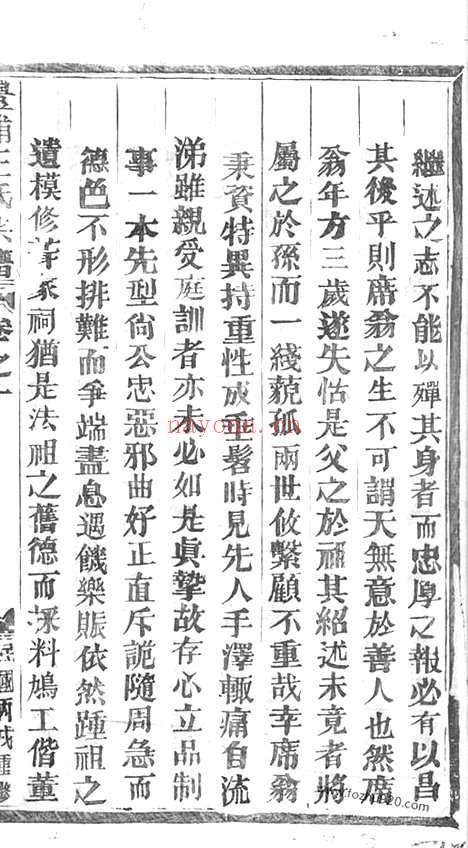 繼述之志不能以殫其身者而忠厚之報必有以昌
其後乎則席翁之生不可謂天無意於善人也然席
翁年方三歲遂失怙是父之於祖其紹述未竟者將
屬之於孫而一綫藐孤兩世攸繫顧不重哉幸席翁
秉資特異持重性成垂髫時見先人手澤輙痛自流
涕雖親受庭訓者亦未必如是眞摯故存心立品制
事一本先型尙公忠惡邪曲好正直斥詭隨周急而
德色不形排難而爭端盡息遇饑樂賑依然踵祖之
遺模修葺家祠猶是法祖之舊德而採料鳩工偕董
氏 譜 卷之一
民國丙戌重修
nayona.cn
www.fozhu920.com